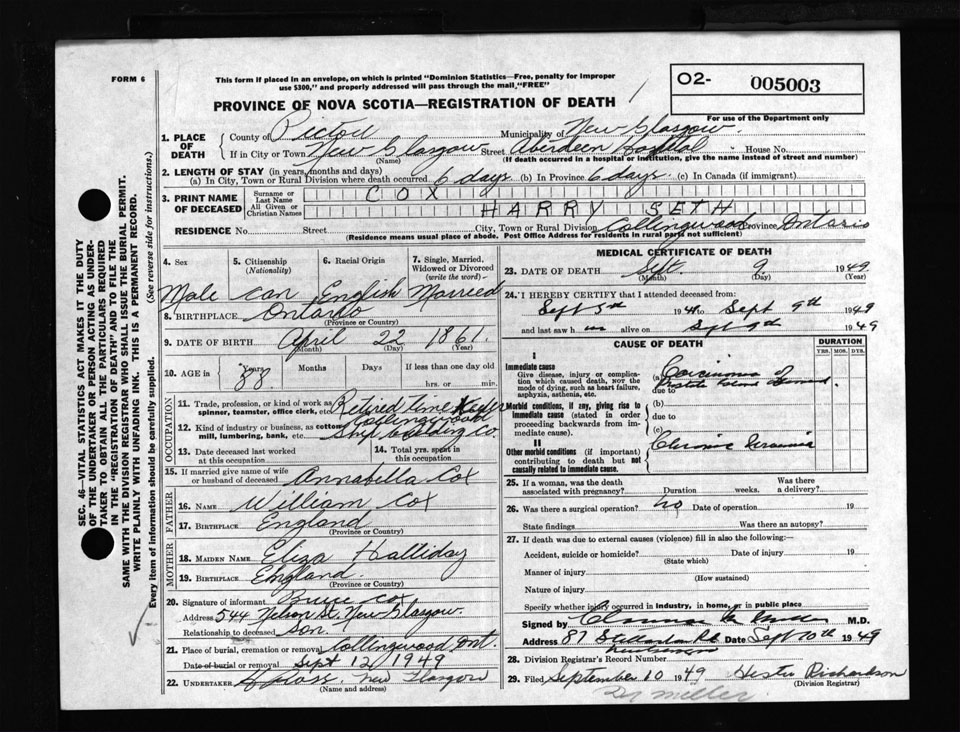 FORM 6
This form if placed in an envelope, on which is printed "Dominion Statistics—Free, penalty for improper
use $300," and properly addressed will pass through the mail, "FREE"
O2- 005003
For use of the Department only
PROVINCE OF NOVA SCOTIA—REGISTRATION OF DEATH
1. PLACE OF DEATH
County of Pictou Municipality of New Glasgow.
If in City or Town New Glasgow Street Aberdeen Hospital House No.
(Name) (If death occurred in a hospital or institution, give the name instead of street and number)
2. LENGTH OF STAY (in years, months and days)
(a) In City, Town or Rural Division where death occurred 6 days (b) In Province 6 days (c) In Canada (if immigrant)
3. PRINT NAME OF DECEASED
Surname or Last Name COX
All Given or Christian Names HARRY SETH
RESIDENCE No. Street City, Town or Rural Division Collingwood Province Ontario
(Residence means usual place of abode. Post Office Address for residents in rural parts not sufficient)
4. Sex
5. Citizenship (Nationality)
6. Racial Origin
7. Single, Married, Widowed or Divorced (write the word)
Male Can English Married
8. BIRTHPLACE Ontario
(Province or Country)
9. DATE OF BIRTH April 22 1861
(Month) (Day) (Year)
10. AGE in Years Months Days If less than one day old
88 hrs. or min.
OCCUPATION
11. Trade, profession, or kind of work as
spinner, teamster, office clerk, etc. Retired time Keeper
12. Kind of industry or business, as cotton Collingwood
mill, lumbering, bank, etc. Ship building Co.
13. Date deceased last worked at this occupation
14. Total yrs. spent in this occupation
15. If married give name of wife or husband of deceased Annabella Cox
FATHER
16. Name William Cox
17. Birthplace England
(Province or Country)
MOTHER
18. Maiden Name Eliza Halliday
19. Birthplace England.
(Province or Country)
20. Signature of informant Bruce Cox
Address 544 Nelson St. New Glasgow.
Relationship to deceased Son.
21. Place of burial, cremation or removal Collingwood Ont.
Date of burial or removal Sept 12, 1949
22. UNDERTAKER New Glasgow
(Name and address)
MEDICAL CERTIFICATE OF DEATH
23. DATE OF DEATH Sept. 9 1949
(Month) (Day) (Year)
24. I HEREBY CERTIFY that I attended deceased from:
Sept 5th 19 to Sept 9th 1949
and last saw him alive on Sept 9th 1949
CAUSE OF DEATH
DURATION
YRS. MOS. DYS.
I
Immediate cause
Give disease, injury or complication which caused death, NOT the mode of dying, such as heart failure, asphyxia, asthenia, etc.
(a) Carcinoma of
due to Prostate
Morbid conditions, if any, giving rise to immediate cause (stated in order proceeding backwards from immediate cause).
(b)
due to
(c)
II
Other morbid conditions (if important) contributing to death but not causally related to immediate cause.
Chronic
25. If a woman, was the death associated with pregnancy? Duration weeks. Was there a delivery?
26. Was there a surgical operation? no Date of operation 19
State findings Was there an autopsy?
27. If death was due to external causes (violence) fill in also the following:—
Accident, suicide or homicide? Date of injury 19
(State which)
Manner of injury
(How sustained)
Nature of injury
Specify whether injury occurred in industry, in home, or in public place
Signed by M.D.
Address 87 Date Sept 10th 1949
28. Division Registrar's Record Number
29. Filed September 10 1949 Hester Richardson
(Division Registrar)
Miller
SEC. 46—VITAL STATISTICS ACT MAKES IT THE DUTY
OF THE UNDERTAKER OR PERSON ACTING AS UNDER-
TAKER TO OBTAIN ALL THE PARTICULARS REQUIRED
IN THE "REGISTRATION OF DEATH" AND TO FILE THE
SAME WITH THE DIVISION REGISTRAR WHO SHALL ISSUE THE BURIAL PERMIT.
WRITE PLAINLY WITH UNFADING INK. THIS IS A PERMANENT RECORD.
Every item of information should be carefully supplied. (See reverse side for instructions.)